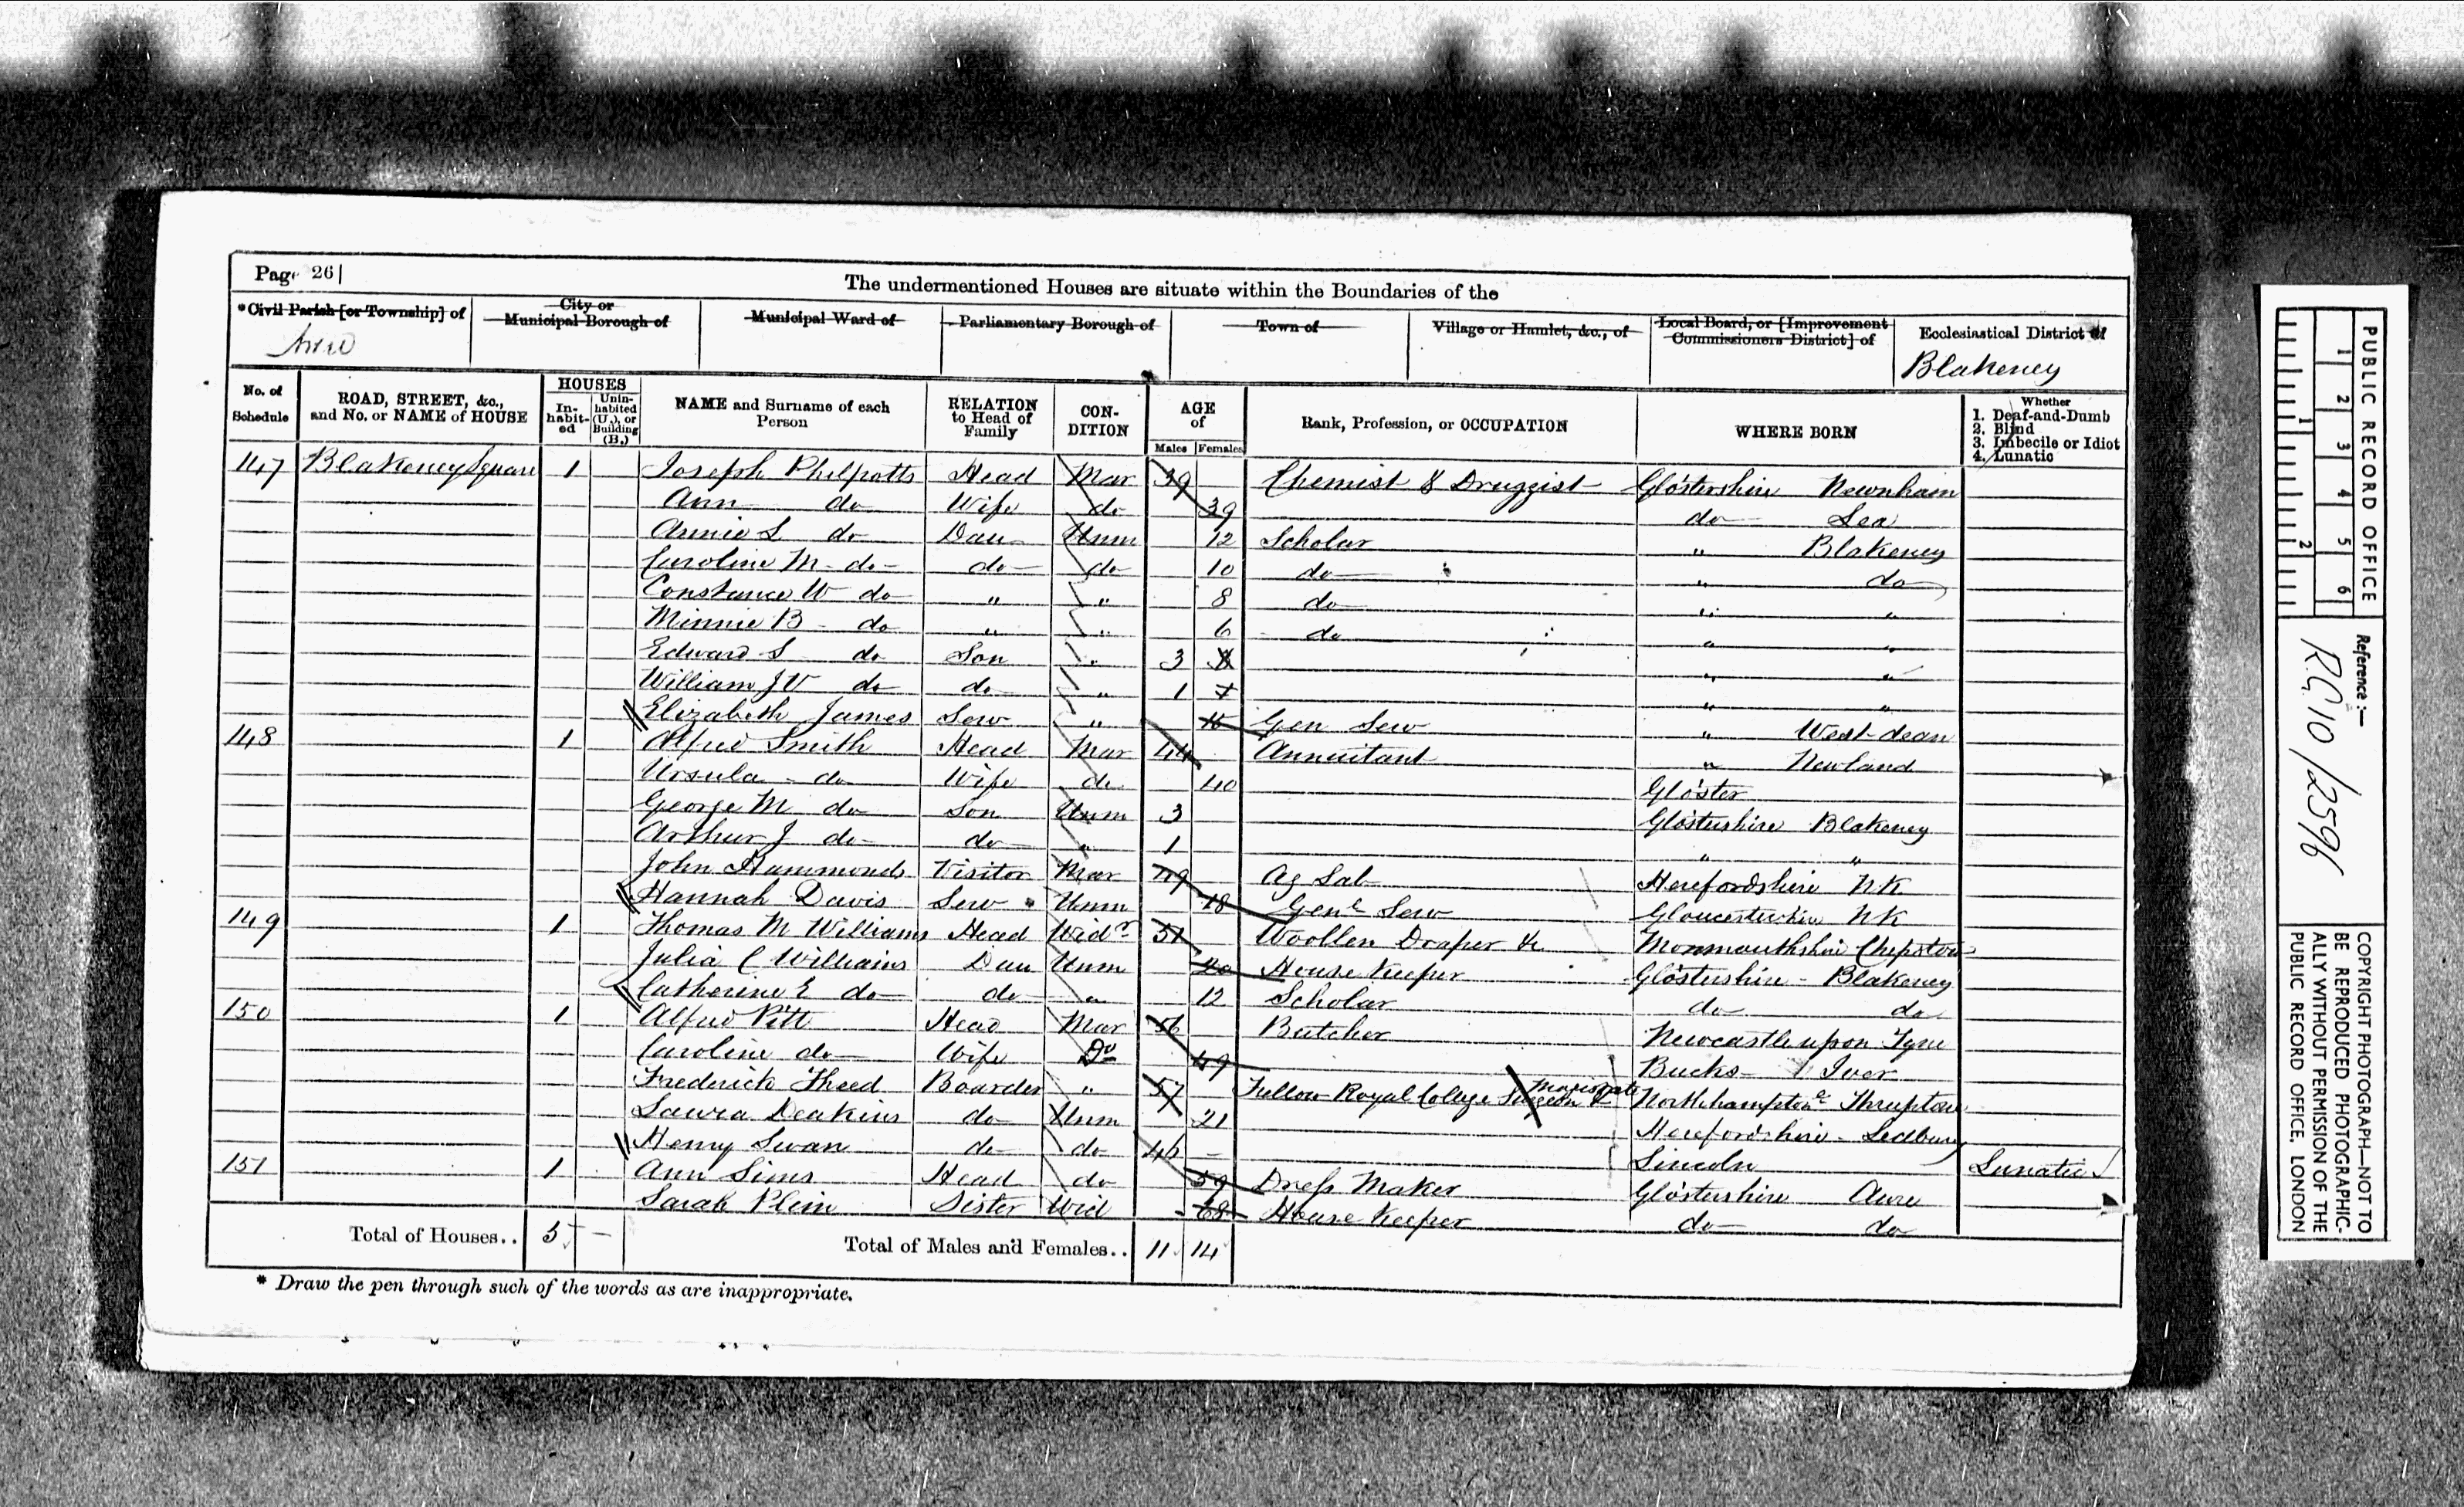 Page 26
The undermentioned Houses are situate within the Boundaries of the
*Civil Parish [or Township] of
City or Municipal Borough of
Municipal Ward of
Parliamentary Borough of
Town of
Village or Hamlet, &c., of
Local Board, or [Improvement Commissioners District] of
Ecclesiastical District of
Awre
Blakeney
No. of Schedule
ROAD, STREET, &c., and No. or NAME of HOUSE
HOUSES
In-habit-ed
Unin-habited (U.), or Building (B.)
NAME and Surname of each Person
RELATION to Head of Family
CON-DITION
AGE of
Males Females
Rank, Profession, or OCCUPATION
WHERE BORN
Whether
1. Deaf-and-Dumb
2. Blind
3. Imbecile or Idiot
4. Lunatic
147 Blakeney Square 1 Joseph Philpotts Head Mar 39 Chemist & Druggist Glostershire Newnham
Ann do Wife do 39 do Lea
Annie L do Dau Unm 12 Scholar " Blakeney
Caroline M do do do 10 do " do
Constance W do " " 8 do " "
Minnie B do " " 6 do " "
Edward S do Son " 3 " "
William J V do do " 1 " "
Elizabeth James Serv " Gen Serv " West dean
148 1 Alfred Smith Head Mar 44 Annuitant " Newland
Ursula do Wife do 40 Gloster
George M do Son Unm 3 Glostershire Blakeney
Arthur J do do " 1 " "
John Hammonds Visitor Mar 49 Ag Lab Herefordshire NK
Hannah Davis Serv Unm 18 Genl Serv Gloucestershire NK
149 1 Thomas M Williams Head Widr 51 Woollen Draper &c Monmouthshire Chepstow
Julia C Williams Dau Unm 20 House Keeper Glostershire Blakeney
Catherine E do do " 12 Scholar do do
150 1 Alfred Pitt Head Mar 56 Butcher Newcastle upon Tyne
Caroline do Wife Do 49 Bucks Iver
Frederick Theed Boarder " 57 Fellow Royal College Surgeon & Northampton Thrapston
Laura Deakins do Unm 21 Herefordshire Ledbury
Henry Swan do do 46 Lincoln Lunatic
151 1 Ann Sims Head do 59 Dress Maker Glostershire Awre
Sarah Plein Sister Wid 68 House Keeper do do
Total of Houses.. 5 —
Total of Males and Females.. 11 14
* Draw the pen through such of the words as are inappropriate.
PUBLIC RECORD OFFICE
1 2 3 4 5 6
1 2
Reference :-
RG 10/2596
COPYRIGHT PHOTOGRAPH—NOT TO
BE REPRODUCED PHOTOGRAPHIC-
ALLY WITHOUT PERMISSION OF THE
PUBLIC RECORD OFFICE, LONDON